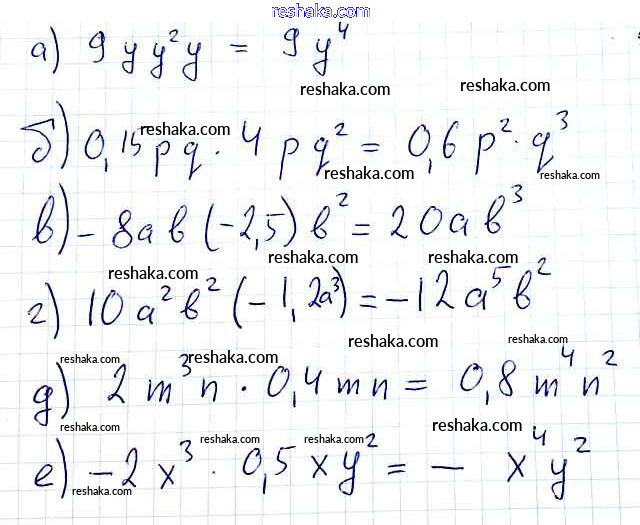 reshaka.com
а) 9 y y² y = 9 y⁴
reshaka.com
reshaka.com
reshaka.com
б) 0,15 p q · 4 p q² = 0,6 p² · q³
reshaka.com
reshaka.com
в) – 8 a b (–2,5) b² = 20 a b³
reshaka.com
reshaka.com
reshaka.com
г) 10 a² b² (–1,2a³) = –12 a⁵ b²
reshaka.com
reshaka.com
reshaka.com
д) 2 m³ n · 0,4 m n = 0,8 m⁴ n²
reshaka.com
reshaka.com
reshaka.com
е) –2 x³ · 0,5 x y² = – x⁴ y²
reshaka.com
reshaka.com